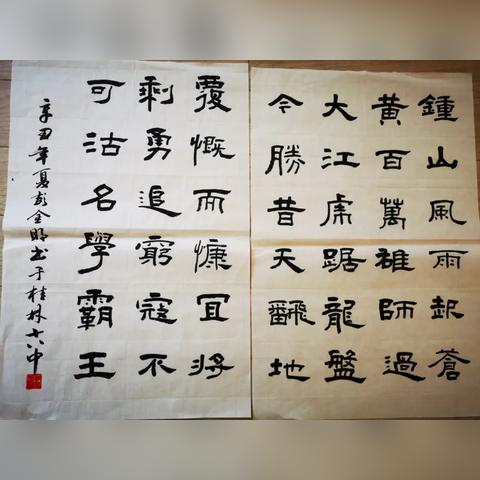 鍾山風雨起蒼
黃百萬雄師過
大江虎踞龍盤
今勝昔天飜地
覆慨而慷宜将
剩勇追窮寇不
可沽名學霸王
辛丑年夏彭金明书于桂林十八中